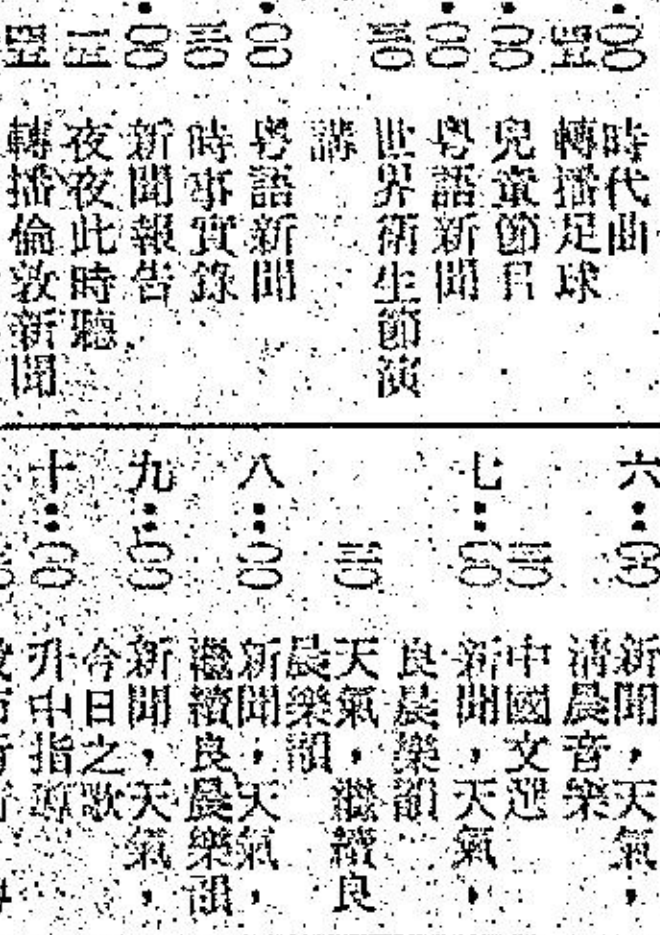 :〇〇 時代曲
四五 轉播足球
:〇〇 兒童節目
:〇〇 粵語新聞
三〇 世界衛生節演
講
:〇〇 粵語新聞
三〇 時事實錄
:〇〇 新聞報告
一五 夜夜此時聽
四五 轉播倫敦新聞
六:〇〇 新聞,天氣,
清晨音樂
三〇 中國文選
七:〇〇 新聞,天氣,
良晨樂韻
三〇 天氣,繼續良
晨樂韻
八:〇〇 新聞,天氣,
繼續良晨樂韻
九:〇〇 新聞,天氣,
今日之歌
十:〇〇 升中指導